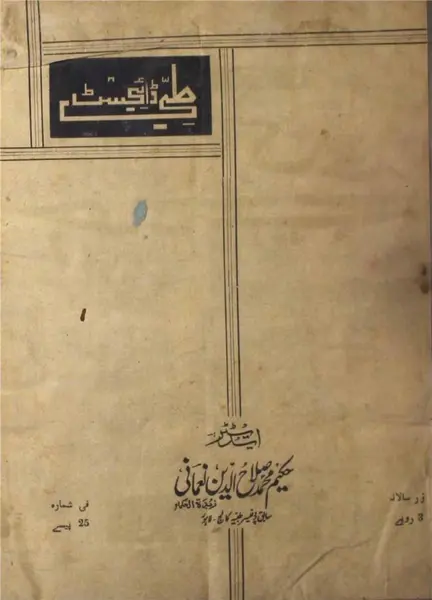 طبی ڈائجسٹ
ایڈیٹر
حکیم محمد صلاح الدین نعمانی
زبدۃ الحکماء
سابق پروفیسر طبیہ کالج - لاہور
زر سالانہ
3 روپے
فی شمارہ
25 پیسے